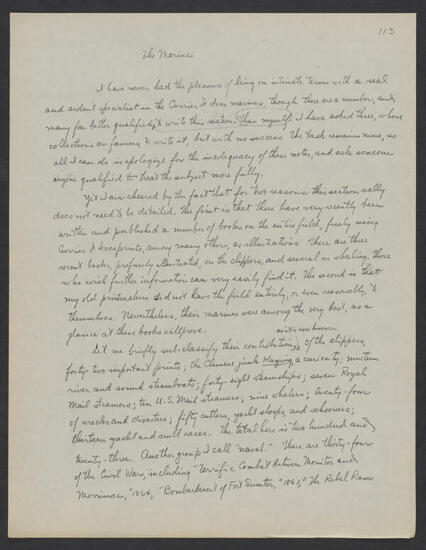 113
The Marines
I have never had the pleasure of being on intimate terms with a real
and ardent specialist in the Currier & Ives marines, though there are a number, and
many far better qualified to write this section than myself. I have asked three, whose
collections are famous, to write it, but with no success. The task remains more, so
all I can do is apologize for the inadequacy of these notes, and ask someone
anyone qualified to treat the subject more fully.
Yet I am cheered by the fact that for two reasons this section really
does not need to be detailed. The first is that there have very recently been
written and published a number of books on the entire field, freely using
Currier & Ives prints, among many others, as illustrations. There are three
recent books, profusely illustrated, on the clippers, and several on whaling; those
who wish further information can very easily find it. The second is that
my old printmakers did not have the field entirely, or even reasonably, to
themselves. Nevertheless, their marines were among the very best, as a
glance at these books will prove.
as it is now known
Let me briefly sub-classify their contribution, of the clippers,
forty-two important prints; the Chinese junk Keying, a curiosity; nineteen
river and sound steamboats; forty-eight steamships; seven Royal
Mail steamers; ten U.S. Mail steamers; nine whalers; twenty-four
of wrecks and disasters; fifty cutters, yacht sloops and schooners;
thirteen yacht and small races. The total here is two hundred and
twenty-three. Another group I call "naval." There are thirty-four
of the Civil War, including "Terrific Combat between Monitor and
Merrimac," 1864, "Bombardment of Fort Sumter," 1861, "The Rebel Ram